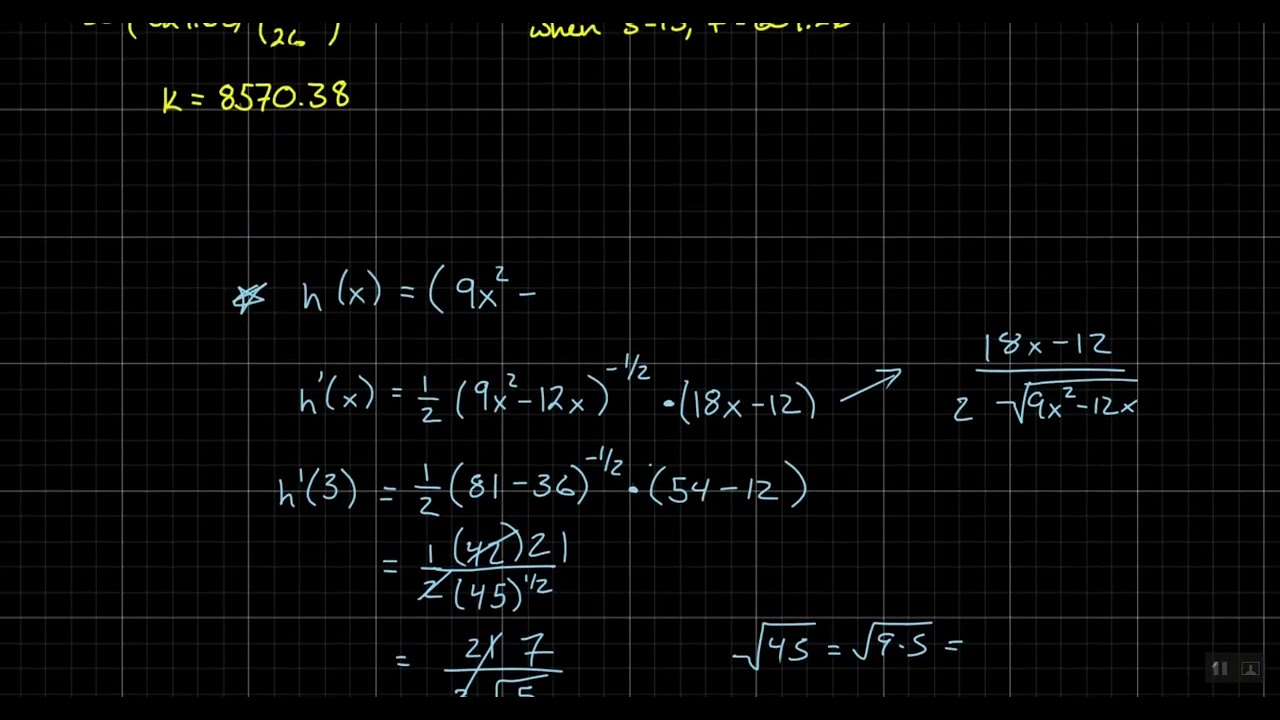 (26)
when s=15,
k = 8570.38
* h(x) = (9x² -
h'(x) = 1/2 (9x² - 12x)^(-1/2) • (18x - 12) → (18x - 12) / (2 √(9x² - 12x))
h'(3) = 1/2 (81 - 36)^(-1/2) • (54 - 12)
= 1 (42) 21 / 2 (45)^(1/2)
= 21 7 / 3 √5
√45 = √9·5 =